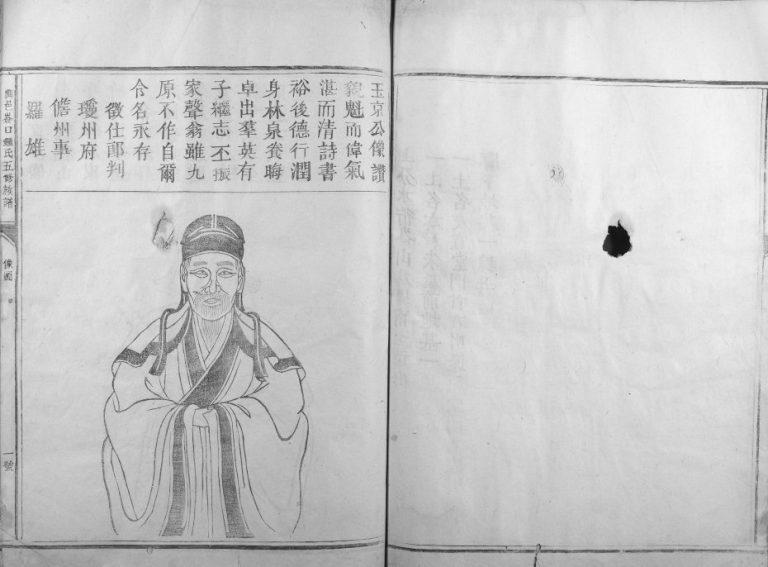 玉京公像讚
貌魁而偉氣
湛而清詩書
裕後德行潤
身林泉養晦
卓出羣英有
子繼志丕振
家聲翁雖九
原不作自爾
令名永存
徵仕郎判
瓊州府
儋州事
羅雄
口鍾氏五修族譜
像圖
一號